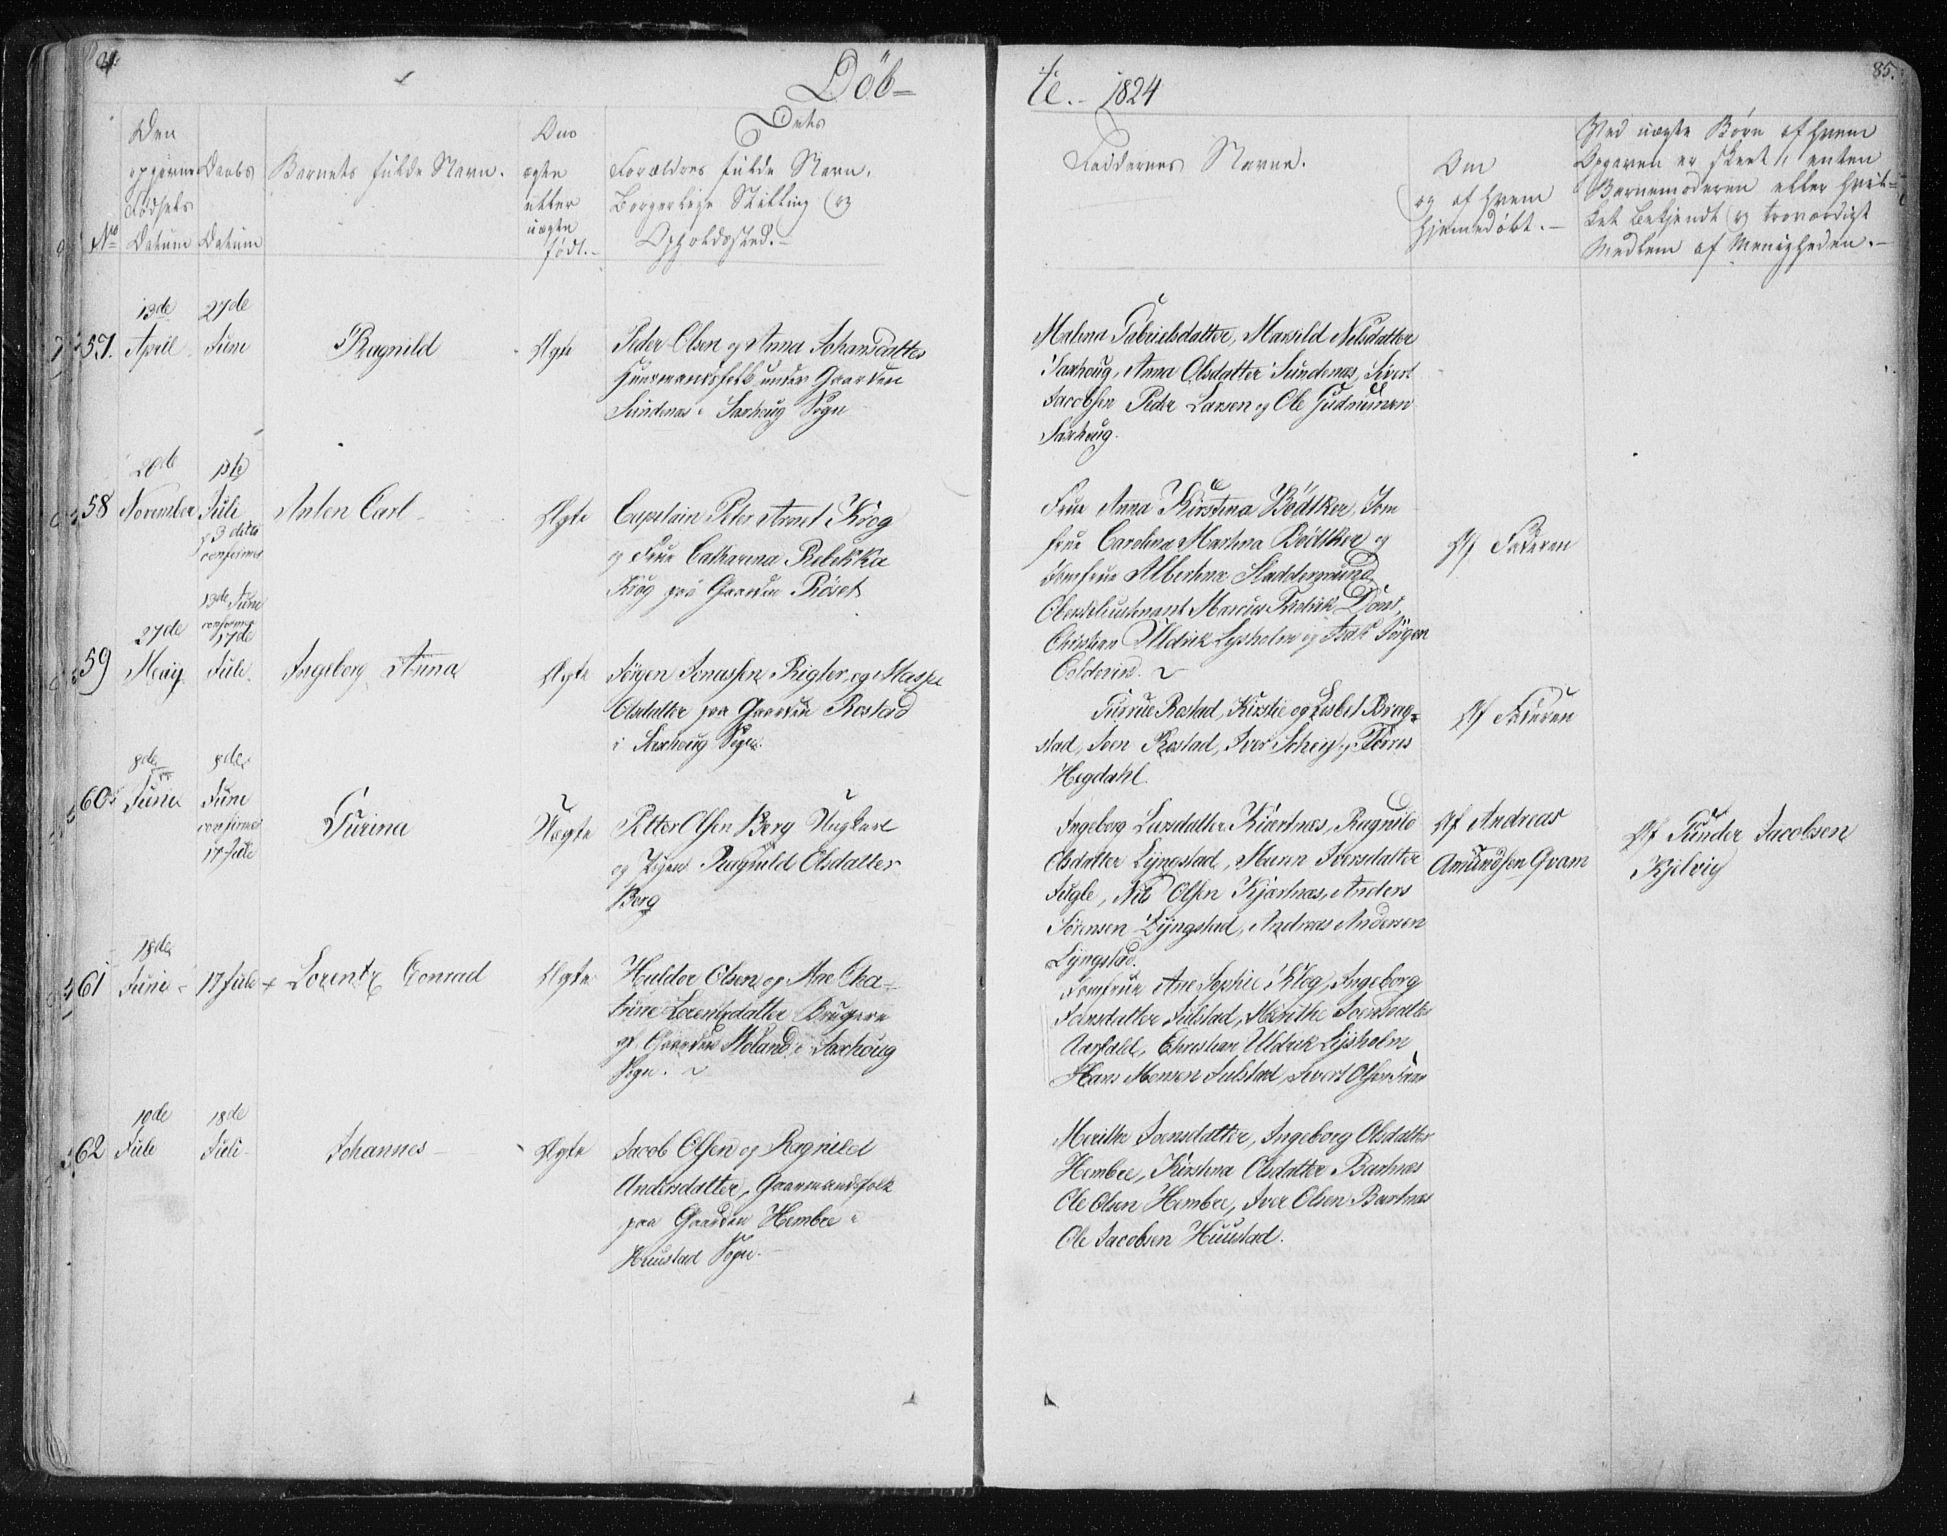 Döb-
te. 1824
85.
No
Den opgivne Fødsels Datum
Daabs Datum
Barnets fulde Navn.
Om ægte eller uægte født.
Dets Forældres fulde Navn, Borgerlige Stilling og Opholdssted.
Faddernes Navne.
Om og af hvem hjemmedøbt.
Ved uægte Børn af hvem Opgaven er skeet, enten Barnemoderen eller hvilket bekjendt og troværdigt Medlem af Menigheden.
57. 13de April
27de June
Ragnild
Ægte
Peder Olsen og Anna Johansdatter
Huusmandsfolk under Gaarden
Sundenes i Saxhoug Sogn
Malena Gabrielsdatter, Marsild Nilsdatter
Saxhoug, Anna Olsdatter Sundenes, Sivert
Jacobsen Peder Larsen og Ole Gudmunsen
Saxhoug.
58 20de November
1ste Juli
3 ditto
confirmer
Anton Carl
Ægte
Capitain Peter Arnet Krog
og Frue Catharena Rebekka
Krog paa Gaarden Röset
Frue Anna Kirstina Bödtker, Jom
frue Carolina Martina Bödtker og
Jomfrue Albertina
Oberstleutenant Marcus Fredrik
Christian Uldrik Lysholm og Jörgen
Af Faderen
59 27de Maiy
13de June
confirmer
17de Jule
Ingeborg Anna
Ægte
Jörgen Jonassen Rigter og
Olsdatter paa Gaarden Rostad
i Saxhoug Sogn.
Rostad, Kirstie og Lisbet Brag-
stad, Joen Rostad, Iver
Hegdahl.
Af Faderen
60. 8de June
8de June
confirmer
17 Jule
Jurina
Uægte
Petter Olsen Borg Ungkarl
og Pigen Ragnild Olsdatter
Borg
Ingeborg Larsdatter Kiærtnæs, Ragnild
Olsdatter Lyngstad, Joensdatter
Fugle, Nils Olsen Kjærtnæs, Anders
Sörensen Lÿngstad, Andreas Andersen
Lyngstad.
Af Andreas
Amundsen Qvam
Af Gunder Jacobsen
Kjelvig
61 18de June
17 Jule
Lorentz Conrad
Ægte
Haldor Olsen og Ane Cha-
trine Lorentzdatter Brugere
af Gaarden Moland i Saxhoug
Sogn.
Jomfrue Ane Sophie Klog, Ingeborg
Jonsdatter Sulstad, Merithe Joensdatter
Aarfald, Christian Uldrik Lysholm
Hans Monsen Sulstad, Sivert Olsen
62 10de Jule
18de Juli
Johannes
Ægte
Jacob Olsen og Ragnild
Andersdatter, Gaarmandsfolk
paa Gaarden Hembre i
Huustad Sogn.
Merithe Joensdatter, Ingeborg Olsdatter
Hembre, Kirstina Olsdatter Bartnæs
Ole Olsen Hembre, Iver Olsen Bartnæs
Ole Jacobsen Huustad.